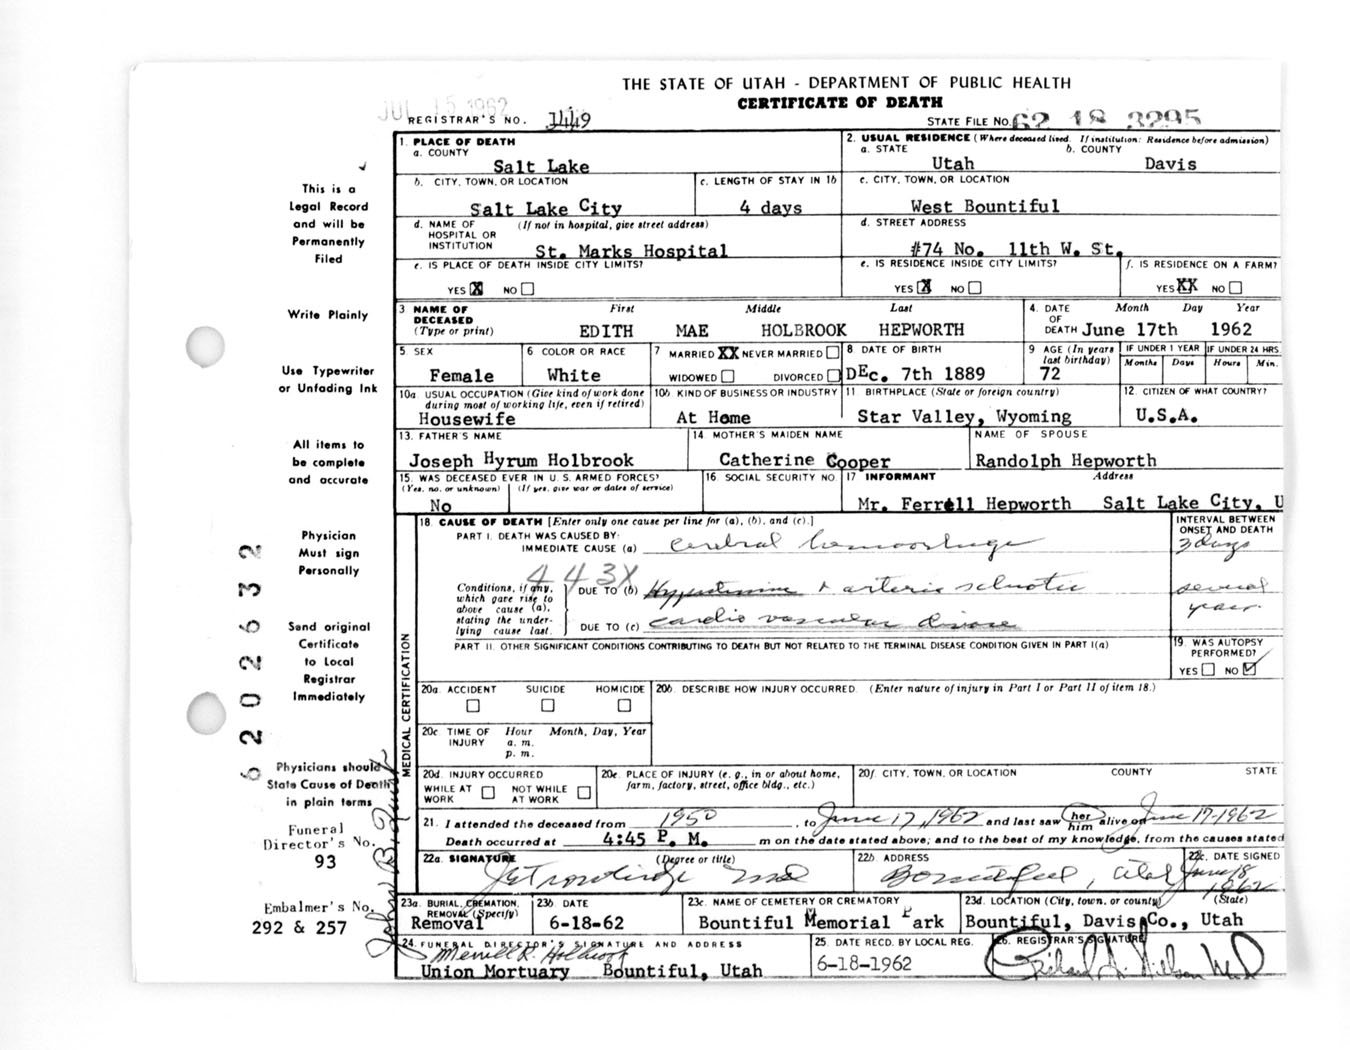 THE STATE OF UTAH - DEPARTMENT OF PUBLIC HEALTH
CERTIFICATE OF DEATH
JUL 15 1962
REGISTRAR'S NO. 1449
STATE FILE NO. 62 18 3295
1. PLACE OF DEATH
a. COUNTY
Salt Lake
2. USUAL RESIDENCE (Where deceased lived. If institution: Residence before admission)
a. STATE b. COUNTY
Utah Davis
b. CITY, TOWN, OR LOCATION
Salt Lake City
c. LENGTH OF STAY IN 1b
4 days
c. CITY, TOWN, OR LOCATION
West Bountiful
d. NAME OF HOSPITAL OR INSTITUTION (If not in hospital, give street address)
St. Marks Hospital
d. STREET ADDRESS
#74 No. 11th W. St.
e. IS PLACE OF DEATH INSIDE CITY LIMITS?
YES X NO
e. IS RESIDENCE INSIDE CITY LIMITS?
YES X NO
f. IS RESIDENCE ON A FARM?
YES XX NO
3 NAME OF DECEASED (Type or print) First Middle Last
EDITH MAE HOLBROOK HEPWORTH
4. DATE OF DEATH Month Day Year
June 17th 1962
5. SEX
Female
6 COLOR OR RACE
White
7 MARRIED XX NEVER MARRIED
WIDOWED DIVORCED
8 DATE OF BIRTH
DEc. 7th 1889
9 AGE (In years last birthday)
72
IF UNDER 1 YEAR Months Days
IF UNDER 24 HRS. Hours Min.
10a USUAL OCCUPATION (Give kind of work done during most of working life, even if retired)
Housewife
10b. KIND OF BUSINESS OR INDUSTRY
At Home
11 BIRTHPLACE (State or foreign country)
Star Valley, Wyoming
12. CITIZEN OF WHAT COUNTRY?
U.S.A.
13. FATHER'S NAME
Joseph Hyrum Holbrook
14 MOTHER'S MAIDEN NAME
Catherine Cooper
NAME OF SPOUSE
Randolph Hepworth
15. WAS DECEASED EVER IN U.S. ARMED FORCES?
(Yes, no, or unknown) (If yes, give war or dates of service)
No
16. SOCIAL SECURITY NO.
17 INFORMANT Address
Mr. Ferrell Hepworth Salt Lake City, U
18. CAUSE OF DEATH [Enter only one cause per line for (a), (b), and (c).]
PART I. DEATH WAS CAUSED BY:
IMMEDIATE CAUSE (a) cerebral hemorrhage
INTERVAL BETWEEN ONSET AND DEATH
3 days
443X
Conditions, if any, which gave rise to above cause (a), stating the underlying cause last.
DUE TO (b) Hypertensive + arterio sclerotic
several
years
DUE TO (c) cardio vascular disease
PART II. OTHER SIGNIFICANT CONDITIONS CONTRIBUTING TO DEATH BUT NOT RELATED TO THE TERMINAL DISEASE CONDITION GIVEN IN PART I(a)
19. WAS AUTOPSY PERFORMED?
YES NO
20a. ACCIDENT SUICIDE HOMICIDE
20b. DESCRIBE HOW INJURY OCCURRED. (Enter nature of injury in Part I or Part II of item 18.)
20c TIME OF INJURY Hour Month, Day, Year
a. m.
p. m.
20d. INJURY OCCURRED
WHILE AT WORK NOT WHILE AT WORK
20e. PLACE OF INJURY (e. g., in or about home, farm, factory, street, office bldg., etc.)
20f. CITY, TOWN, OR LOCATION COUNTY STATE
21. I attended the deceased from 1950, to June 17, 1962 and last saw her him alive on June 17-1962
Death occurred at 4:45 P. M. m on the date stated above; and to the best of my knowledge, from the causes stated
22a. SIGNATURE (Degree or title)
22b ADDRESS
Bountiful, Utah
22c. DATE SIGNED
June 18 1962
23a. BURIAL, CREMATION, REMOVAL (Specify)
Removal
23b. DATE
6-18-62
23c. NAME OF CEMETERY OR CREMATORY
Bountiful Memorial Park
23d. LOCATION (City, town, or county) (State)
Bountiful, Davis Co., Utah
24. FUNERAL DIRECTOR'S SIGNATURE AND ADDRESS
Merrill R. Holbrook
Union Mortuary Bountiful, Utah
25. DATE RECD. BY LOCAL REG.
6-18-1962
26. REGISTRAR'S SIGNATURE
MEDICAL CERTIFICATION
This is a
Legal Record
and will be
Permanently
Filed
Write Plainly
Use Typewriter
or Unfading Ink
All items to
be complete
and accurate
Physician
Must sign
Personally
Send original
Certificate
to Local
Registrar
Immediately
Physicians should
State Cause of Death
in plain terms
Funeral
Director's No.
93
Embalmer's No.
292 & 257
6202632